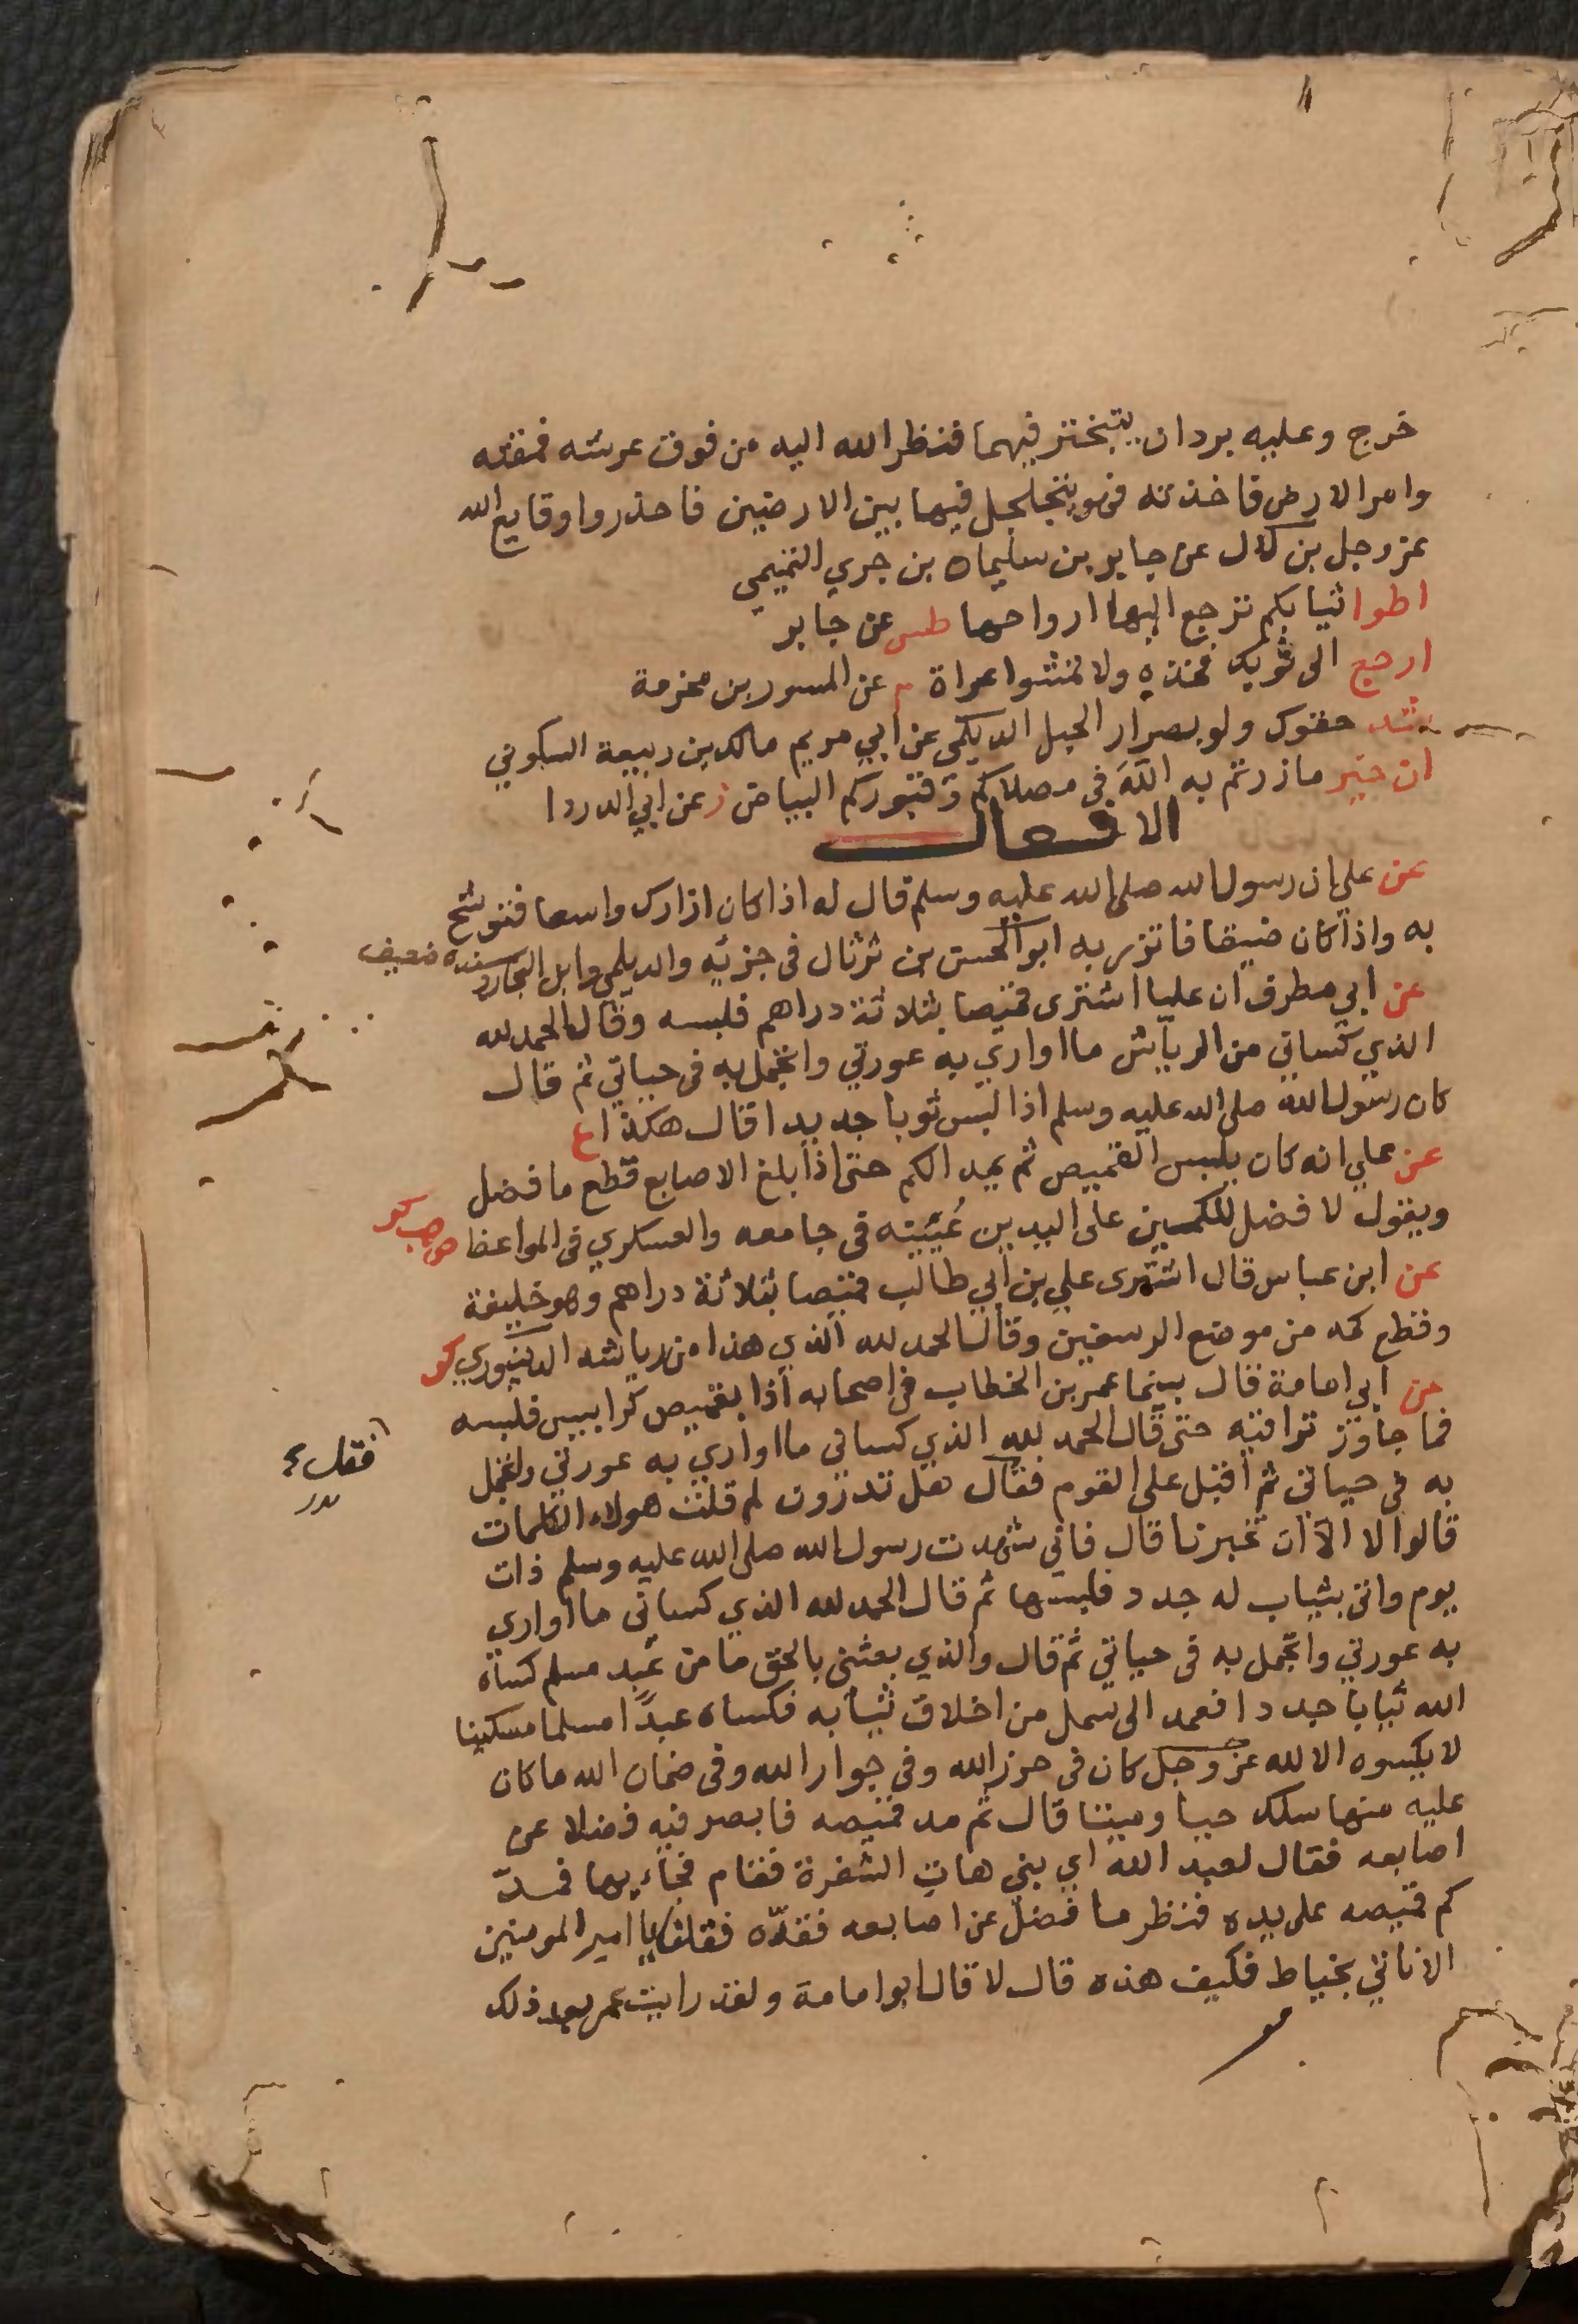 خرج وعليه بردان يتبختر فيهما فنظر الله اليه من فوق عرشه فمقته
وامر الارض فاخذته فهو يتجلجل فيها بين الارضين فاحذروا وقايع الله
عز وجل بن لال عن جابر بن سليمان بن جري التميمي
اطوا ثيابكم ترجع اليها ارواحها طس عن جابر
ارجع الى ثوبك فخذه ولا تمشوا عراة م عن المسور بن مخرمة
شد حقوك ولو بصرار الحبل الديلمي عن ابي مريم مالك بن ربيعة السكوني
ان خير ما زرتم به الله في مصلاكم وقبوركم البياض ز عن ابي الدردا
الافعال
عن علي ان رسول الله صلى الله عليه وسلم قال له اذا كان ازارك واسعا فتوشح
به واذا كان ضيقا فاتزر به ابو الحسن بن ثرثال في جزئه والديلمي وابن النجار وسنده ضعيف
عن ابي مطرف ان عليا اشترى قميصا بثلاثة دراهم فلبسه وقال الحمد لله
الذي كساني من الرياش ما اواري به عورتي واتجمل به في حياتي ثم قال
كان رسول الله صلى الله عليه وسلم اذا لبس ثوبا جديدا قال هكذا ع
عن علي انه كان يلبس القميص ثم يمد الكم حتى اذا بلغ الاصابع قطع ما فضل
ويقول لا فضل للكمين على اليدين بن عُيَيْنه في جامعه والعسكري في المواعظ ص هب كر
عن ابن عباس قال اشترى علي بن ابي طالب قميصا بثلاثة دراهم وهو خليفة
وقطع كمه من موضع الرسغين وقال الحمد لله الذي هذا من رياشه الدينوري كر
عن ابي امامة قال بينما عمر بن الخطاب في اصحابه اذا بقميص كرابيس فلبسه
فما جاوز تراقيه حتى قال الحمد لله الذي كساني ما اواري به عورتي واتجمل
به في حياتي ثم اقبل على القوم فقال هل تدرون لم قلت هولاء الكلمات
قالوا لا الا ان تخبرنا قال فاني شهدت رسول الله صلى الله عليه وسلم ذات
يوم واتى بثياب له جدد فلبسها ثم قال الحمد لله الذي كساني ما اواري
به عورتي واتجمل به في حياتي ثم قال والذي بعثني بالحق ما من عبد مسلم كساه
الله ثيابا جددا فعمد الى سمل من اخلاق ثيابه فكساه عبدًا مسلما مسكينا
لا يكسوه الا لله عز وجل كان في حرز الله وفي جوار الله وفي ضمان الله ما كان
عليه منها سلك حيا وميتا قال ثم مد قميصه فابصر فيه فضلا عن
اصابعه فقال لعبد الله اي بني هات الشفرة فقام فجاء بها فمد
كم قميصه على يده فنظر ما فضل عن اصابعه فقدّه فقلنا يا امير المومنين
الا ناتي بخياط فكيف هذه قال لا قال ابو امامة ولقد رايت عمر بعد ذلك